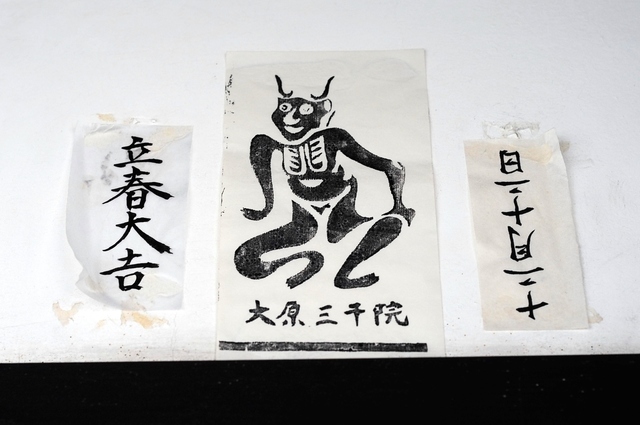 立春大吉
大原三千院
十二月十二日